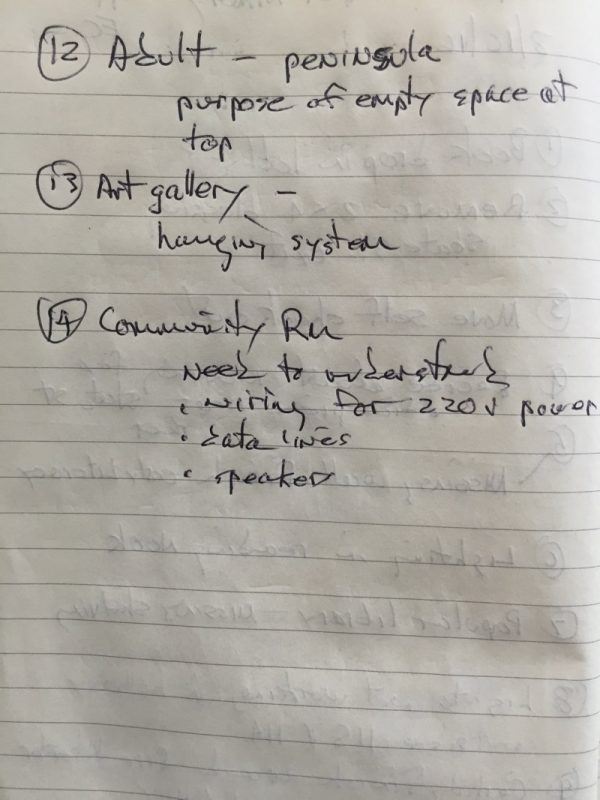 12 Adult - peninsula
purpose of empty space at
top
13 Art gallery -
hanging system
14 Community Rm
need to understand
· wiring for 220v power
· data lines
· speaker